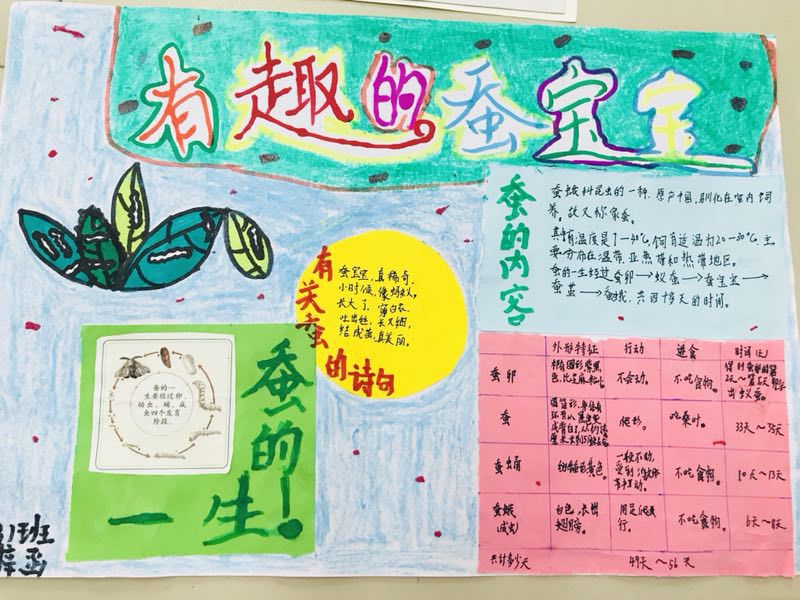 有趣的蚕宝宝
蚕的内容
蚕蛾科昆虫的一种，原产中国，驯化在室内饲
养，故又称家蚕。
温度是7-40℃，饲育适温为20-30℃，主
要分布在温带、亚热带和热带地区。
蚕的一生经过蚕卵→蚁蚕→蚕宝宝→
蚕茧→蚕蛾，共四十多天的时间。
有关蚕的诗句
蚕宝宝，真稀奇，
小时候，像蚂蚁。
长大了，穿白衣，
吐出丝，长又细，
结成茧，真美丽。
蚕的一生！
蚕的一
生要经过卵、
幼虫、蛹、成
虫四个发育
阶段。
外形特征 行动 进食 时间(天)
蚕卵 不会动。 不吃食物。
蚕 爬行。 吃桑叶。 33天～35天
蚕蛹 一般不动， 不吃食物。 10天～13天
蚕蛾 成虫 白色，长出翅膀。 不吃食物。 6天～8天
共计多少天 49天～56天
班
函